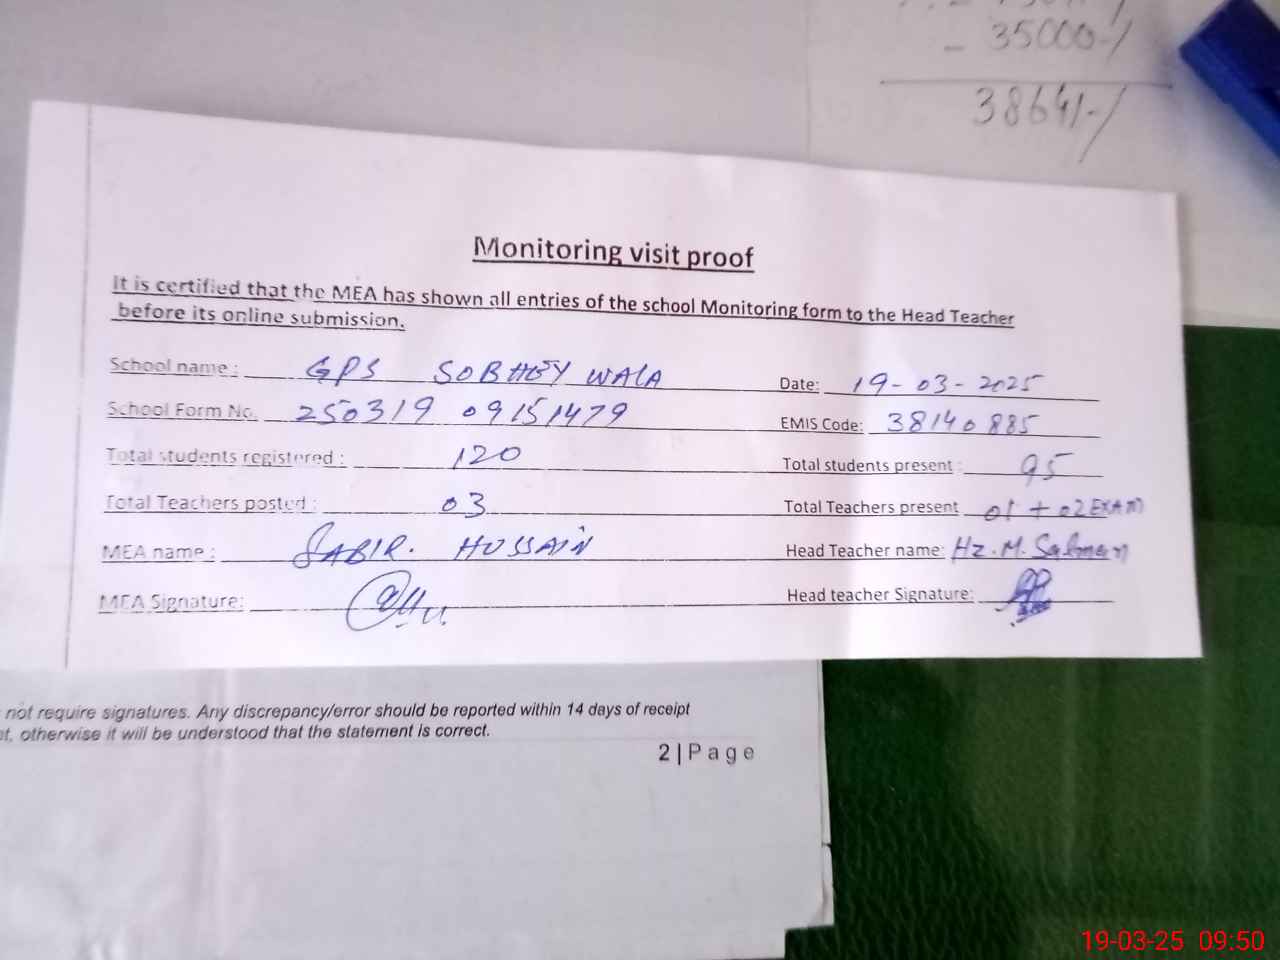 - 35000-/
38641-/
Monitoring visit proof
It is certified that the MEA has shown all entries of the school Monitoring form to the Head Teacher
before its online submission.
School name : GPS SOBHEY WALA Date: 19-03-2025
School Form No. 250319 09151479 EMIS Code: 38140885
Total students registered : 120 Total students present : 95
Total Teachers posted : 03 Total Teachers present 01 + 02 EXAM
MEA name : SABIR. HUSSAIN Head Teacher name: Hz. M. Salman
MEA Signature: Head teacher Signature:
not require signatures. Any discrepancy/error should be reported within 14 days of receipt
otherwise it will be understood that the statement is correct.
2 | Page
19-03-25 09:50